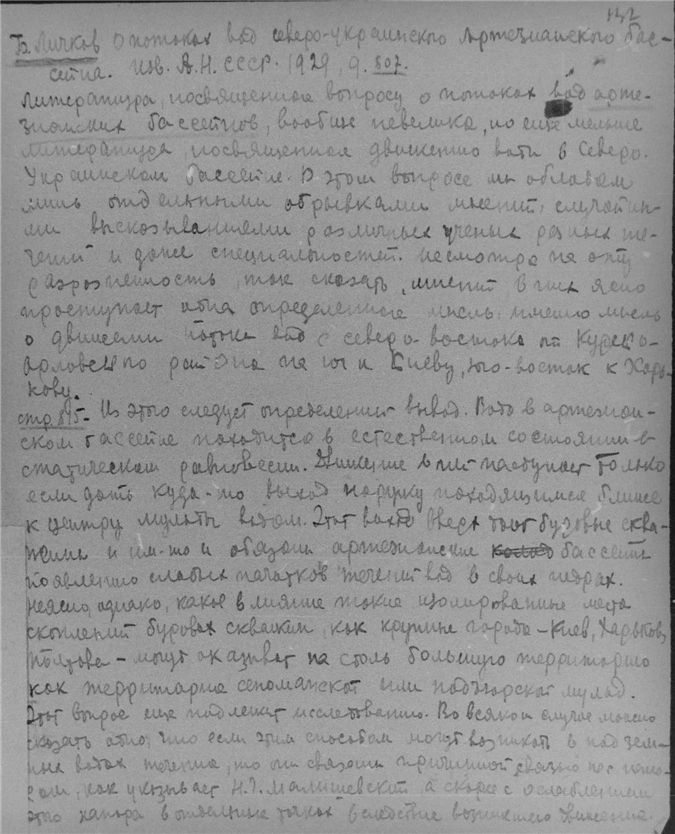 132
Б. Личков О потоках вод северо-украинского артезианского бас-
сейна. Изв. А.Н. СССР. 1929, 9. 807.
Литература, посвященная вопросу о потоках вод арте-
зианских бассейнов, вообще невелика, но еще меньше
литература, посвященная движению воды в Северо-
Украинском бассейне. В этом вопросе мы обладаем
лишь отдельными обрывками мнений, случайны-
ми высказываниями различных ученых разных те-
чений и даже специальностей. Несмотря на эту
разрозненность, так сказать, мнений в них ясно
проступает одна определенная мысль, именно мысль
о движении вод с северо-востока от Курско-
Орловского района на юг к Киеву, юго-восток к Харь-
кову.
стр 815. Из этого следует определенный вывод. Вода в артезиан-
ском бассейне находится в естественном состоянии в
статическом равновесии. Движение в ней наступает только
если дать куда-то выход наружу находящимся ближе
к центру мульды водам. Этот выход вверх дают буровые сква-
жины и им-то и обязаны артезианские бассейны
появлению слабых зачатков течений вод в своих недрах.
Неясно, однако, какое влияние такие изолированные места
скоплений буровых скважин, как крупные города - Киев, Харьков,
Полтава - могут оказывать на столь большую территорию
как территория сеноманской или подъюрской мульд.
Этот вопрос еще подлежит исследованию. Во всяком случае можно
сказать одно, что если этим способом могут возникать в подзем-
ных водах течения, то они связаны причинной связью не с напо-
ром, как указывает Н.Г. Малишевский, а скорее с ослаблением
этого напора в отдельных точках вследствие возникшего движения.